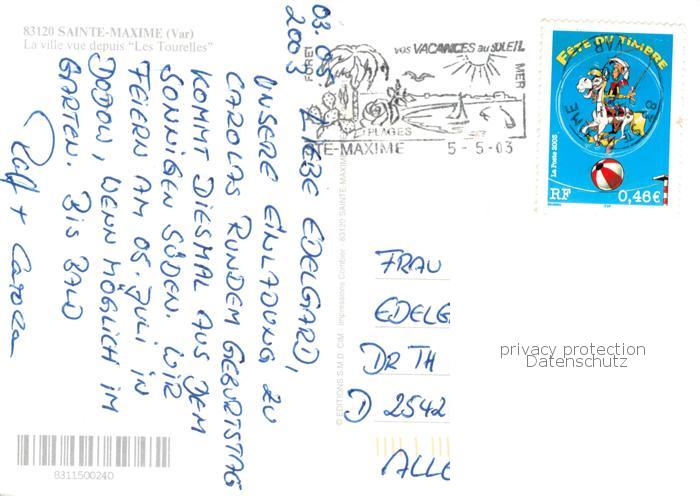 83120 SAINTE-MAXIME (Var)
La ville vue depuis "Les Tourelles"
03.05.
2003
LIEBE EDELGARD,
UNSERE EINLADUNG ZU
CAROLAS RUNDEM GEBURTSTAG
KOMMT DIESMAL AUS DEM
SONNIGEN SÜDEN. WIR
FEIERN AM 05. JULI IN
DODOW, WENN MÖGLICH IM
GARTEN. BIS BALD
Ralf + Carola
8311500240
© EDITIONS S.M.D. CIM Impressions Combier 83120 SAINTE-MAXIME
FORET
VOS VACANCES au SOLEIL
MER
PLAGES
TE-MAXIME 5-5-03
FÊTE DU TIMBRE
La Poste 2003
RF 0,46€
FRAU
EDELG
DR TH
D 2542
ALLE
privacy protection
Datenschutz